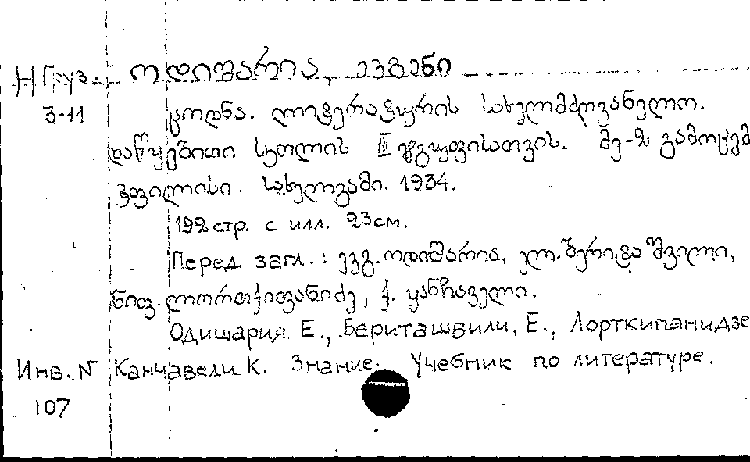 Н Груз. ოდიშარია, ევგენი
3-11 ცოდნა. ლიტერატურის სახელმძღვანელო.
დაწყებითი სკოლის III ჯგუფისათვის. მე-2 გამოცემ
ტფილისი. სახელგამი. 1934.
192 стр. с илл. 23см.
Перед загл.: ევგ. ოდიშარია, ელ. ბერიტაშვილი,
ნიფ. ლორთქიფანიძე, კ. ყანჩაველი.
Одишария Е., Бериташвили, Е., Лорткипанидзе
Инв. N Канчавели К. Знание. Учебник по литературе.
107